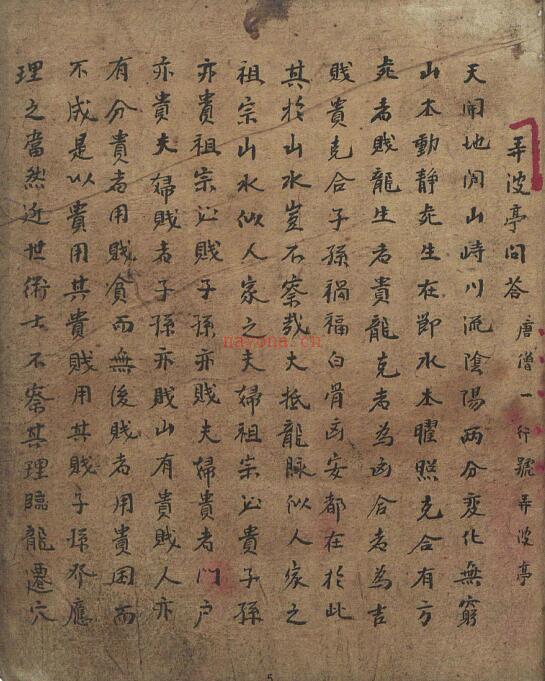 弄波亭问荅 唐僧一行號弄波亭
天開地闭山峙川流陰陽两分变化無窮
山本動静死生在節水本曜照克合有方
死者賤龍生者貴龍克者為凶合者為吉
賤貴克合子孫禍福白骨凶安都在於此
其於山水豈不察哉大抵龍脉似人家之
祖宗山水似人家之夫婦祖宗必貴子孫
亦貴祖宗必賤子孫亦賤夫婦貴者門户
亦貴夫婦賤者子孫亦賤山有貴賤人亦
有分貴者用賤貧而無後賤者用貴困而
不成是以貴用其貴賤用其賤子孫發應
理之當然近世術士不察其理臨龍遷穴
nayona.cn
5